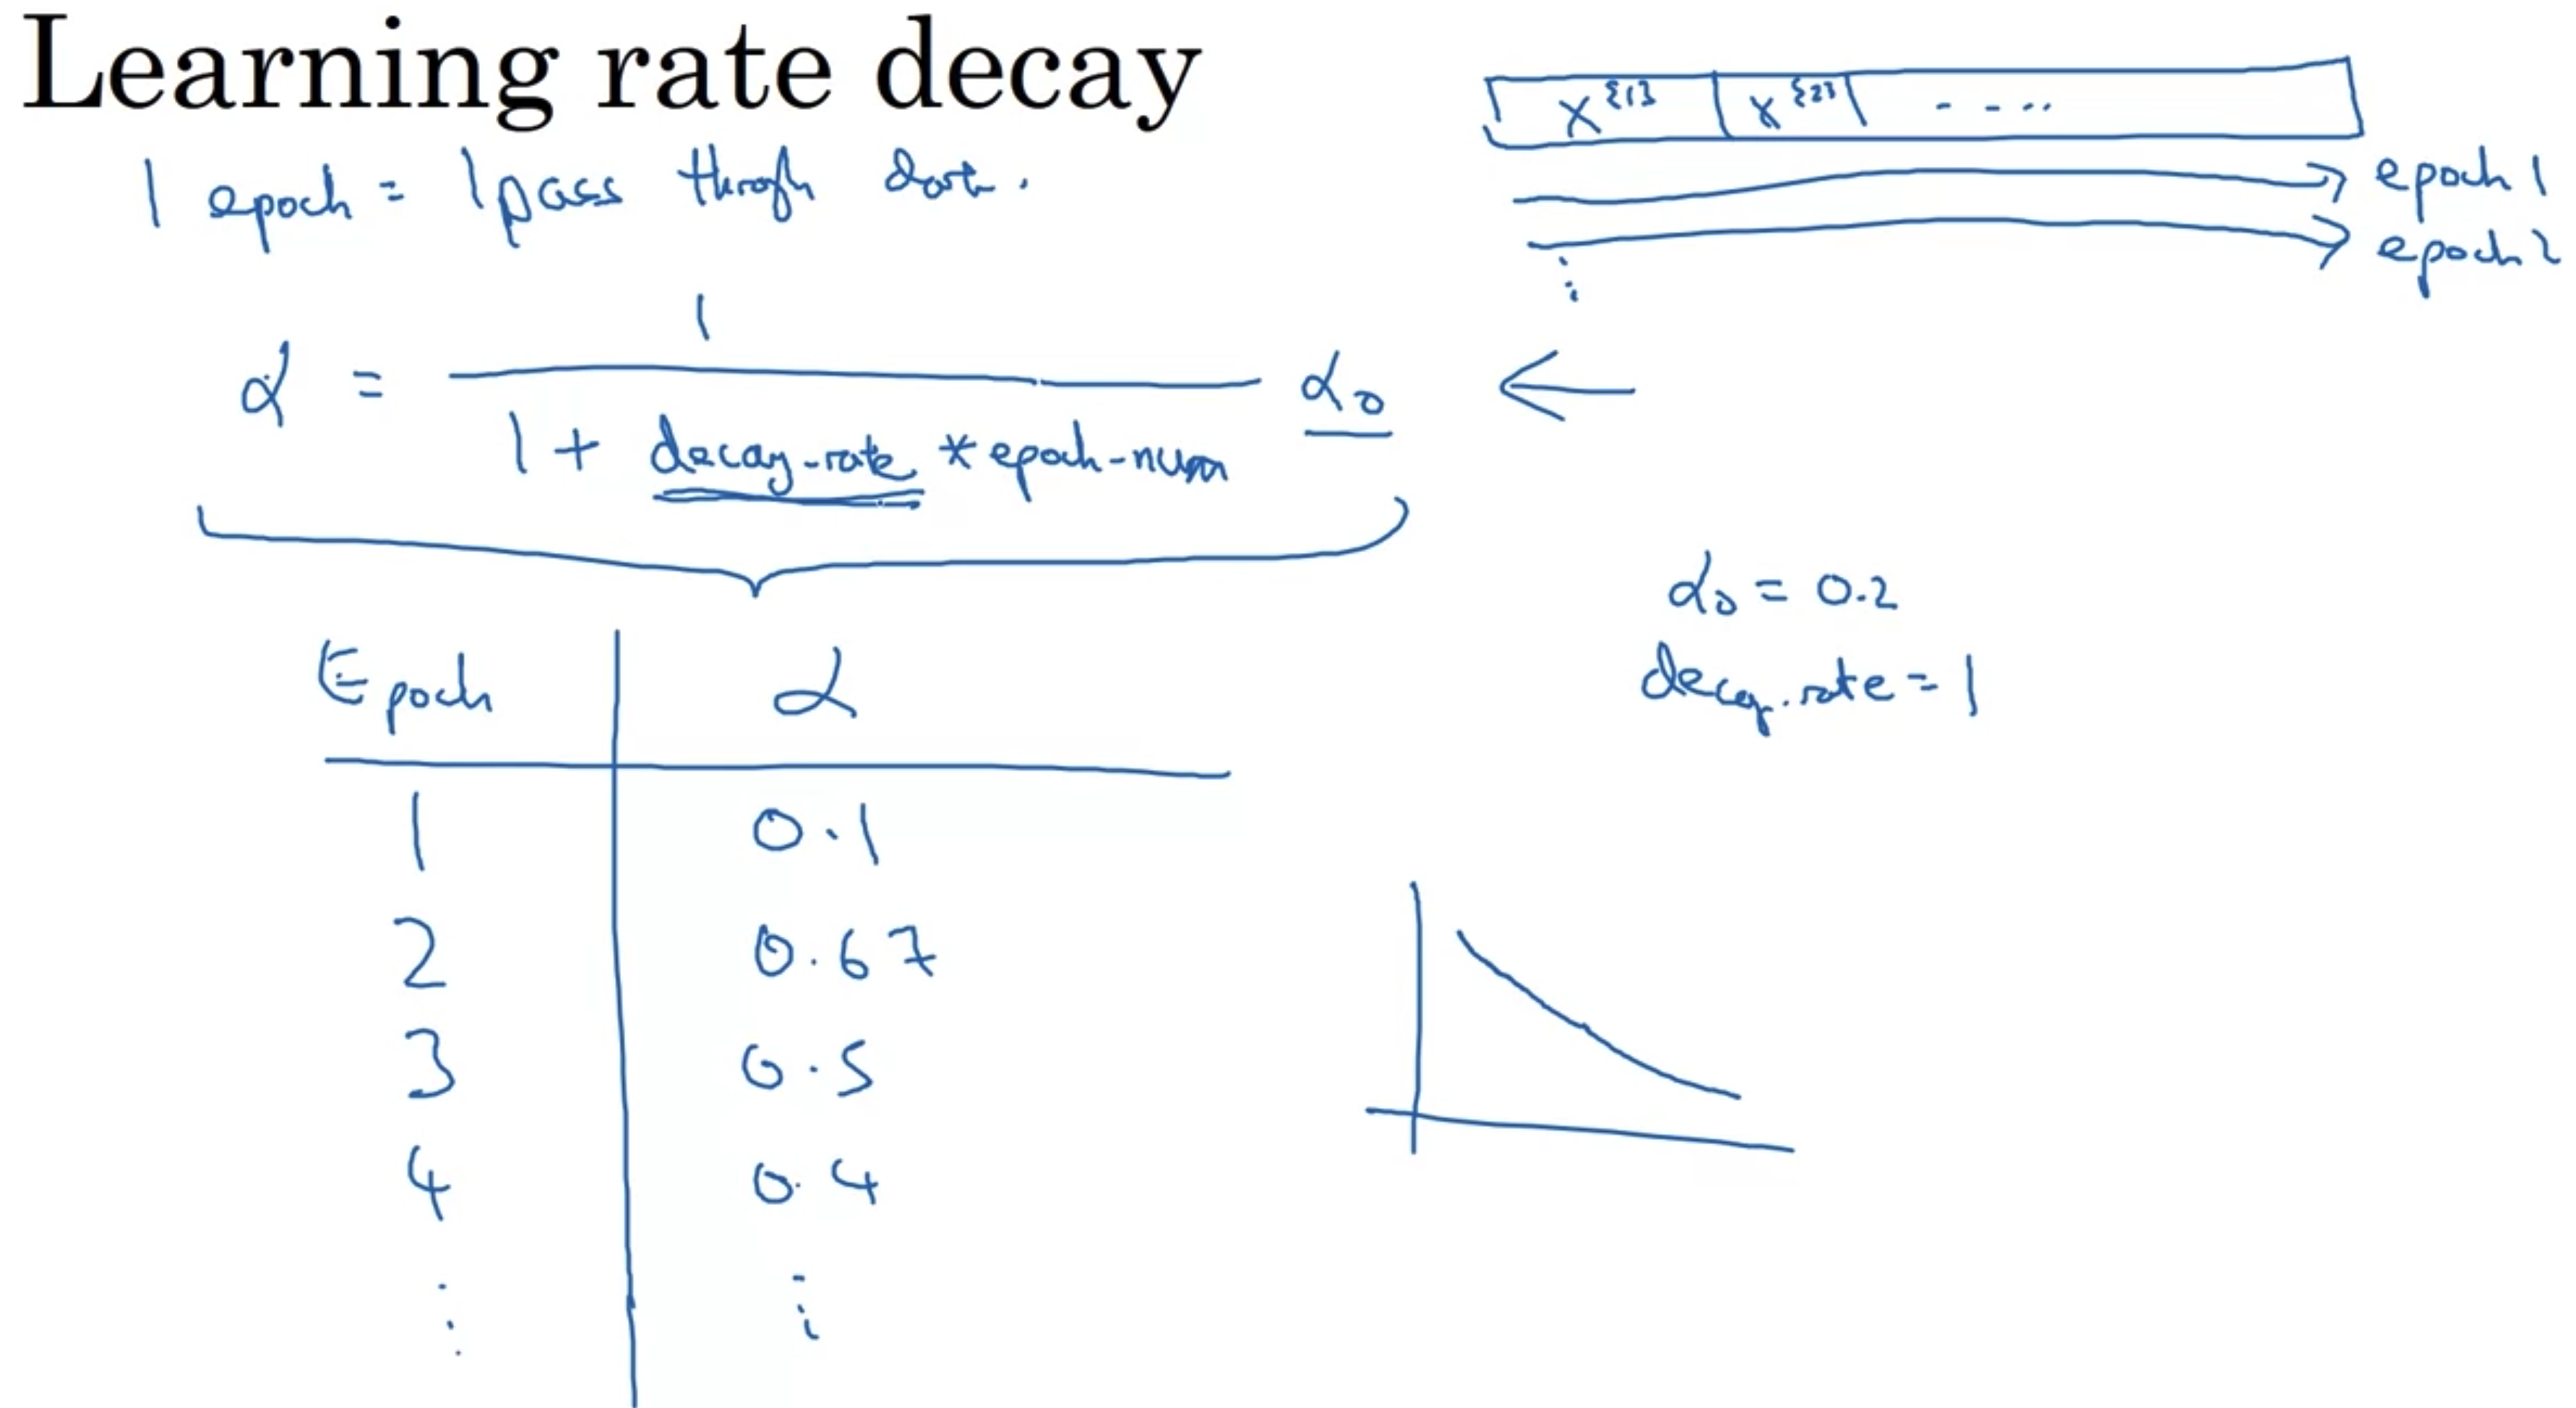 Learning rate decay
1 epoch = 1 pass through data.
X^{1} X^{2} - - - ..
epoch 1
epoch 2
⋮
α = 1 / (1 + decay-rate * epoch-num) α₀ ←
α₀ = 0.2
decay-rate = 1
Epoch | α
1 | 0.1
2 | 0.67
3 | 0.5
4 | 0.4
⋮ | ⋮